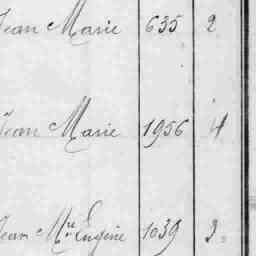 Jean Marie 635 2
Jean Marie 1956 4
Jean Mie Eugène 1039 2